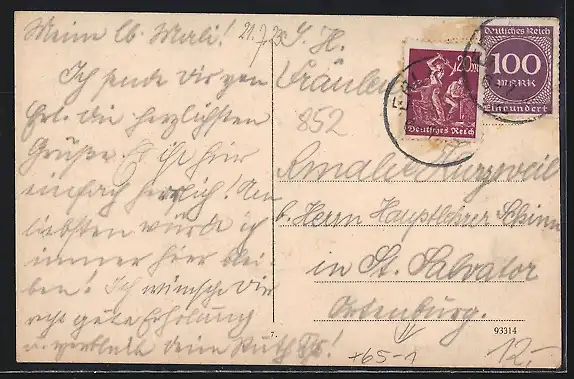 Meine lb. Mali! 21.7.23
Ich sende Dir von
hier die herzlichsten
Grüße. Es ist hier
einfach herrlich! Am
liebsten würde ich
immer hier blei-
ben! Ich wünsche Dir
recht gute Erholung
u. verbleib deine Ruth
S. H.
Fräulein
852
Amalie Kurzweil
b. Herrn Hauptlehrer Schinn
in St. Salvator
Ortenburg.
20 M
Deutsches Reich
Deutsches Reich
100
MARK
Einhundert
7.
93314
+65-1
12,-